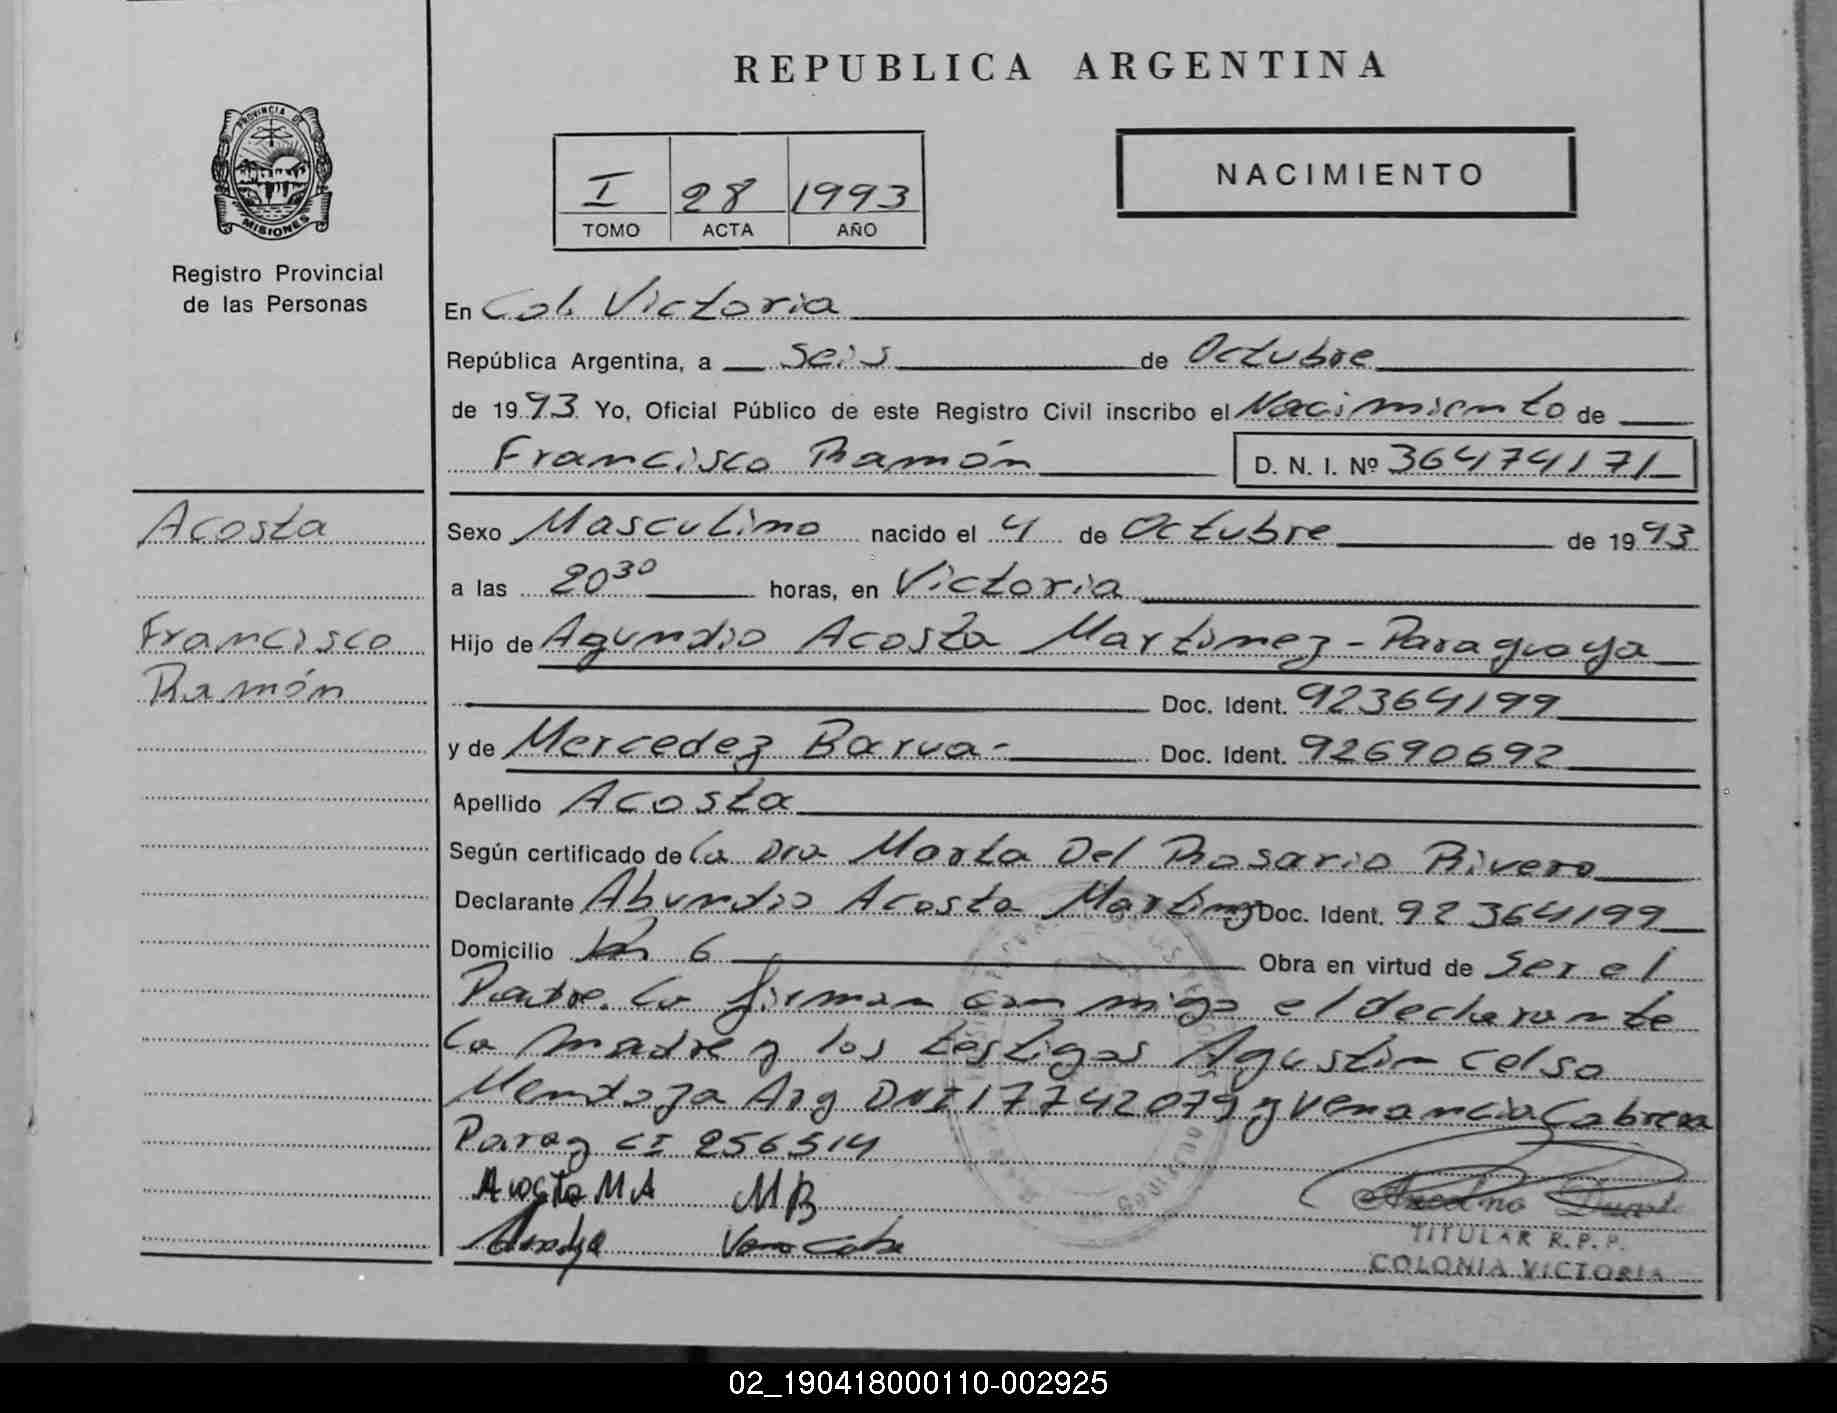 REPUBLICA ARGENTINA
PROVINCIA DE
MISIONES
Registro Provincial
de las Personas
I 28 1993
TOMO ACTA AÑO
NACIMIENTO
En Col. Victoria
República Argentina, a seis de Octubre
de 1993 Yo, Oficial Público de este Registro Civil inscribo el Nacimiento de
Francisco Ramón D. N. I. Nº 36474171
Acosta
Francisco
Ramón
Sexo Masculino nacido el 4 de Octubre de 1993
a las 20 30 horas, en Victoria
Hijo de Agundio Acosta Martinez - Paraguaya
Doc. Ident. 92364199
y de Mercedez Barua - Doc. Ident. 92690692
Apellido Acosta
Según certificado de la Dra Marta Del Rosario Rivero
Declarante Abundio Acosta Martinez Doc. Ident. 92364199
Domicilio Km 6 Obra en virtud de Ser el
Padre. La firman con migo el declarante
La madre y los testigos Agustin Celso
Mendoza Arg DNI 17742079 y Venancia Cabrera
Parag CI 256514
Acosta M A M B
TITULAR R.P.P.
COLONIA VICTORIA
02_190418000110-002925